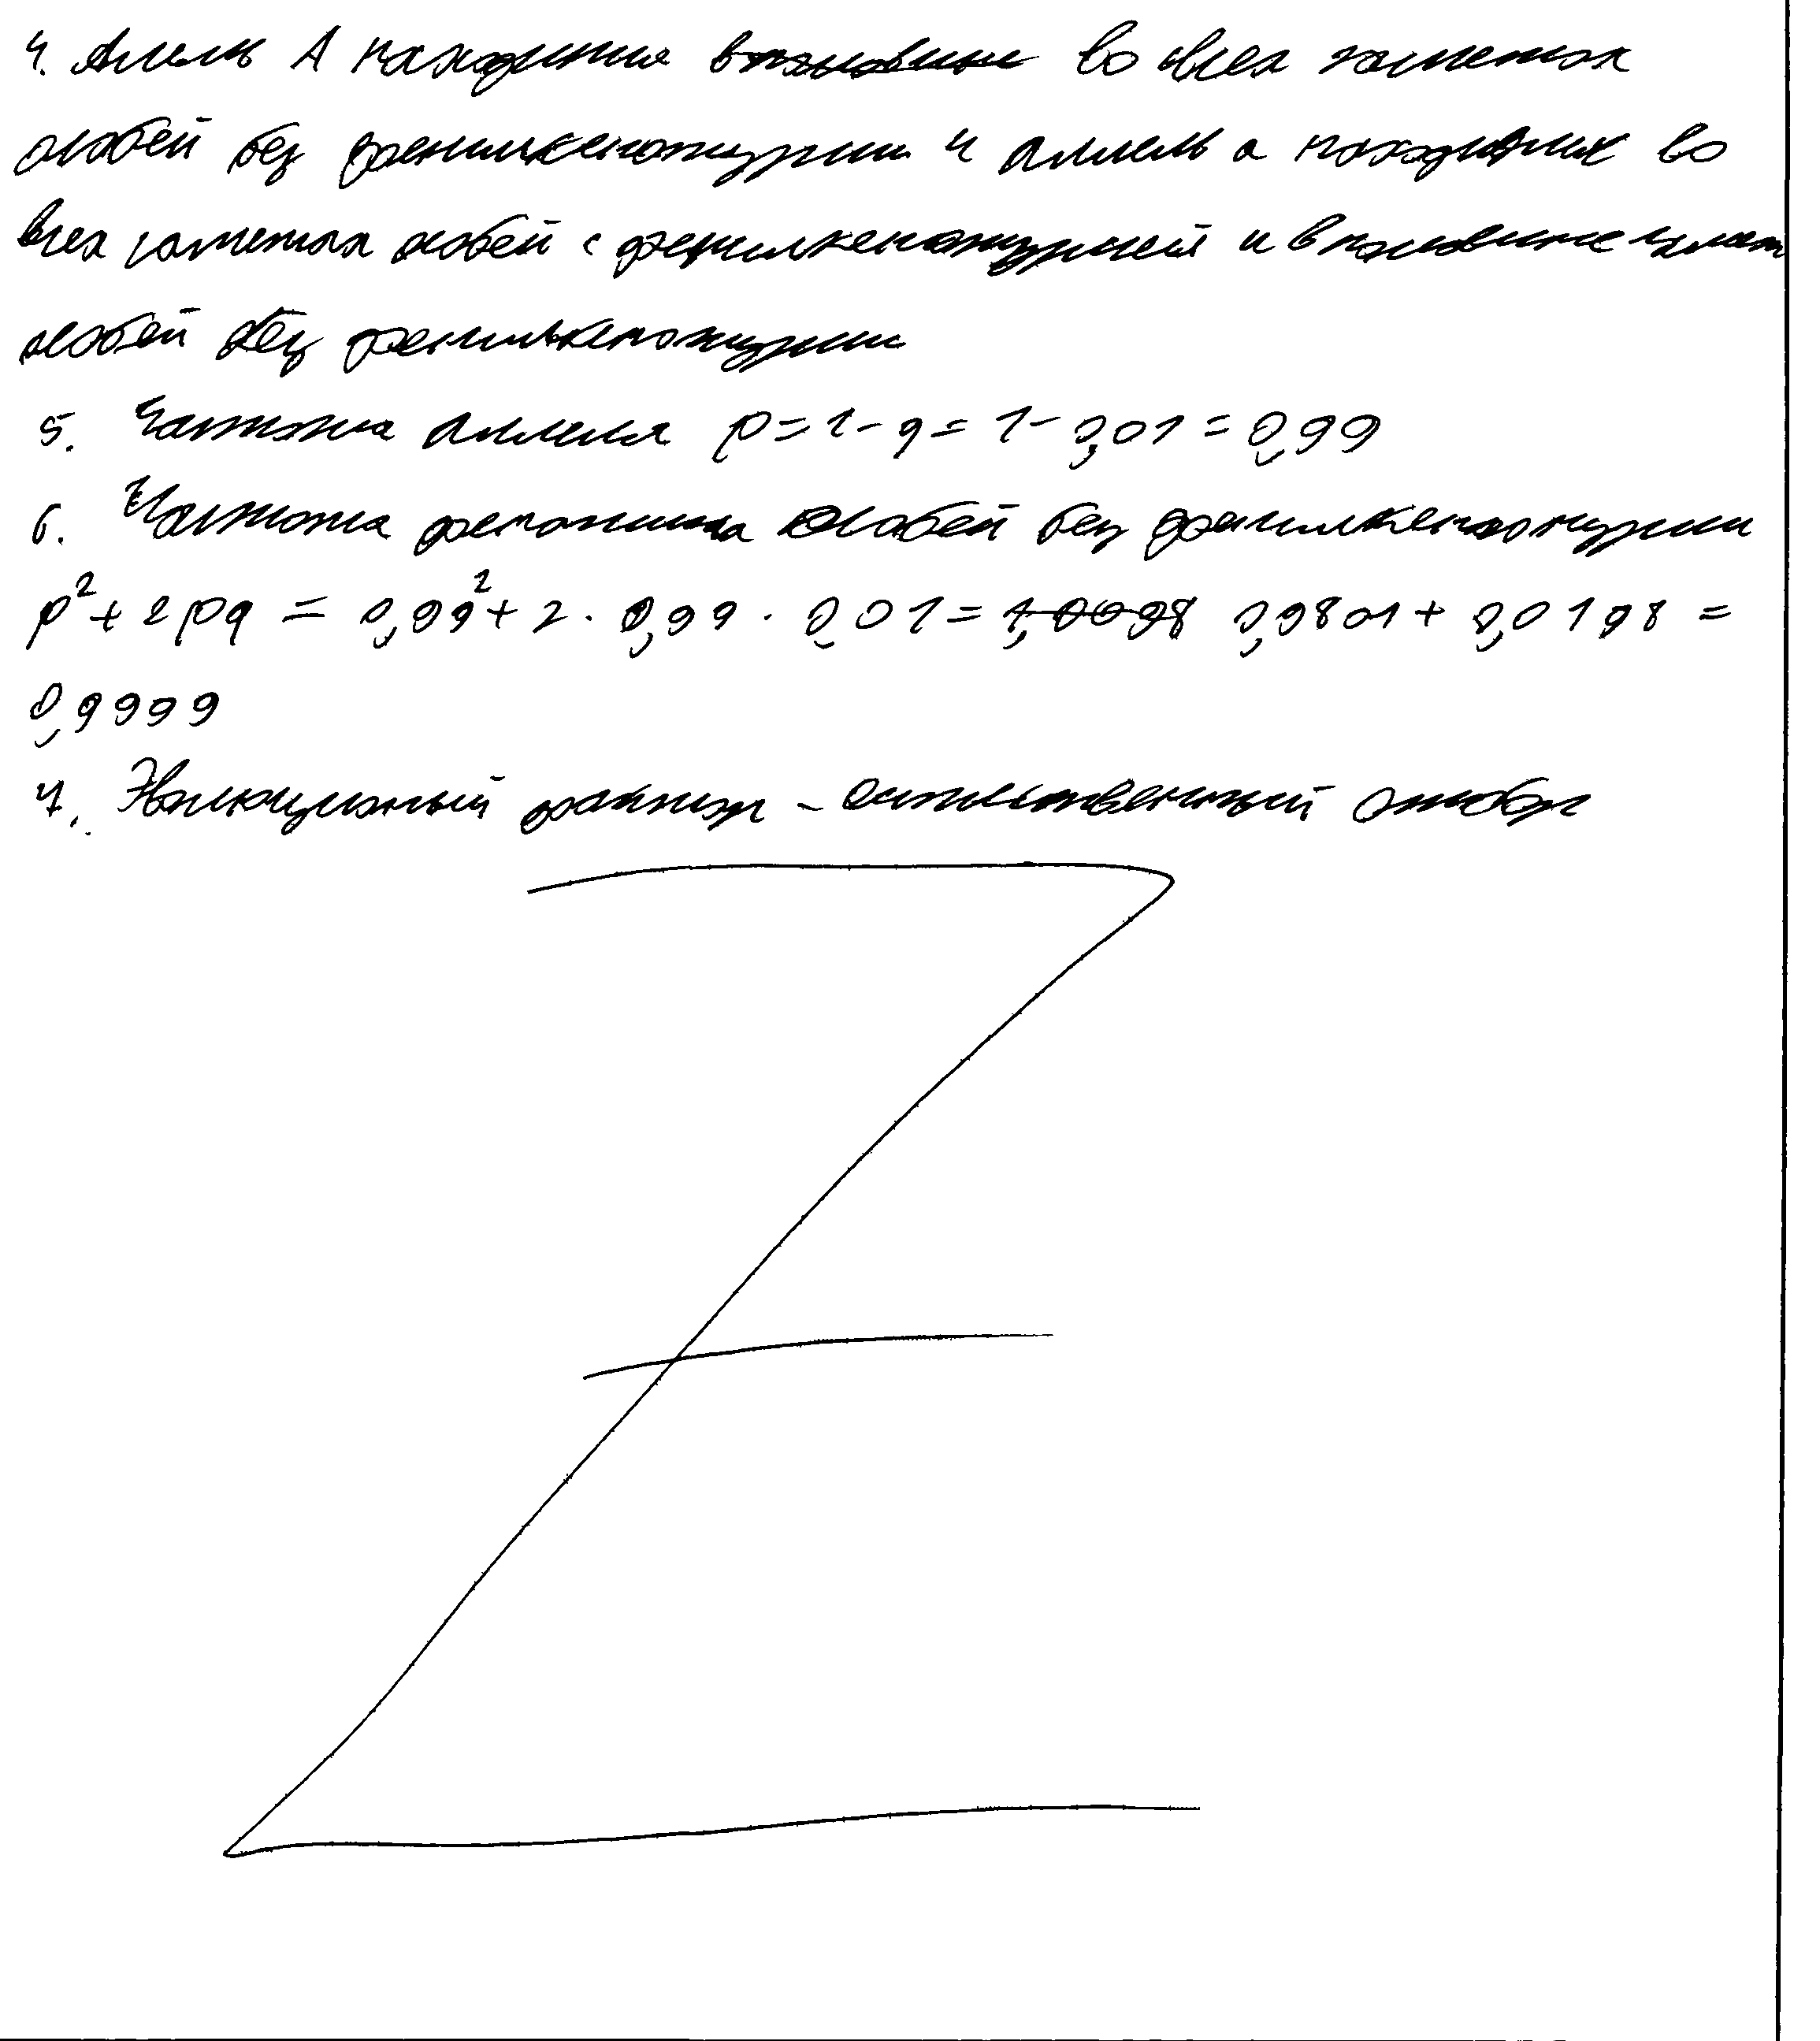 4. Аллель А находится в половине во всех гаметах
особей без фенилкетонурии и аллель а находится во
всех гаметах особей с фенилкетонурией и в половине гамет
особей без фенилкетонурии
5. Частота аллеля p = 1 - q = 1 - 0,01 = 0,99
6. Частота фенотипа особей без фенилкетонурии
p² + 2pq = 0,99² + 2 · 0,99 · 0,01 = 1,0098 0,9801 + 0,0198 =
0,9999
7. Эволюционный фактор - естественный отбор